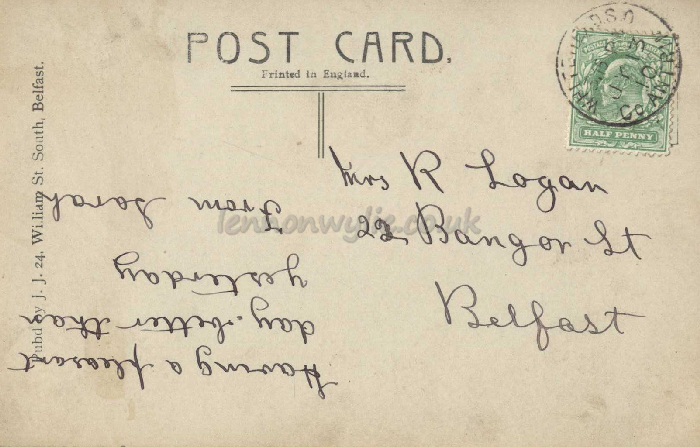 POST CARD.
Printed in England.
Pubd by J. J. 24, William St. South, Belfast.
HALF PENNY
Mrs R Logan
22 Bangor St
Belfast
Having a pleasant
day. better than
yesterday
From Sarah
lennonwylie.co.uk